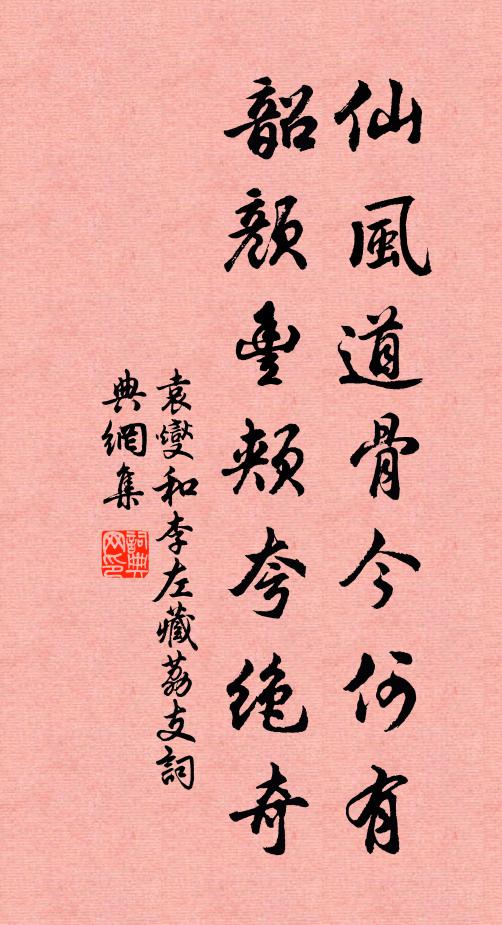 仙風道骨今何有
韶顏豐頰夸絶奇
袁燮和李左藏荔支詞
典網集
詞典網印